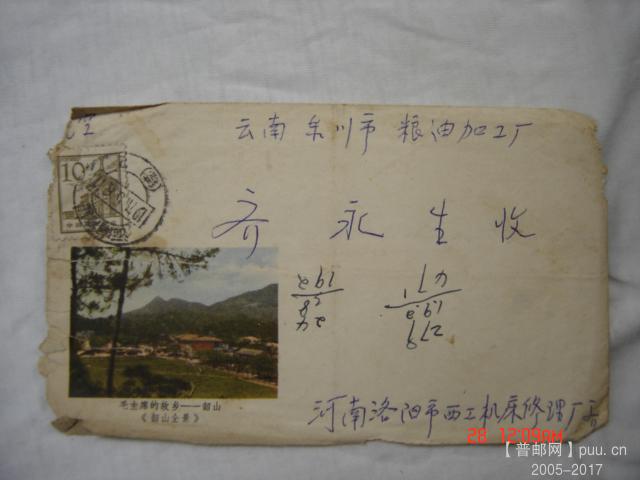 云南东川市 粮油加工厂
10
齐永生收
毛主席的故乡——韶山
《韶山全景》
河南洛阳市西工机床修理厂齐
28 12:09AM
【普邮网】puu.cn
2005-2017